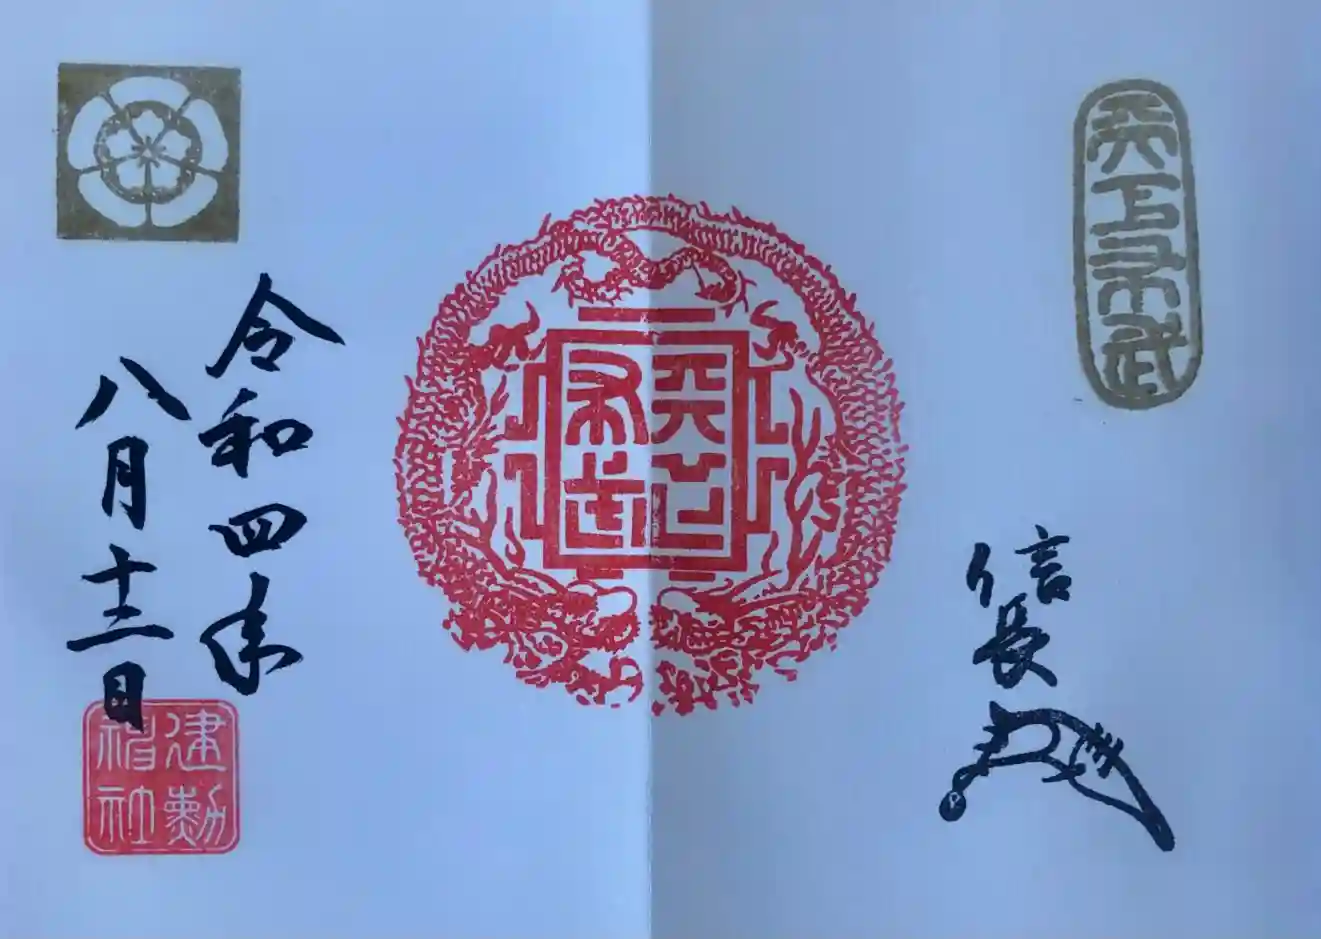 天下布武
信長
天下
布武
令和四年
八月十二日
建勲
神社